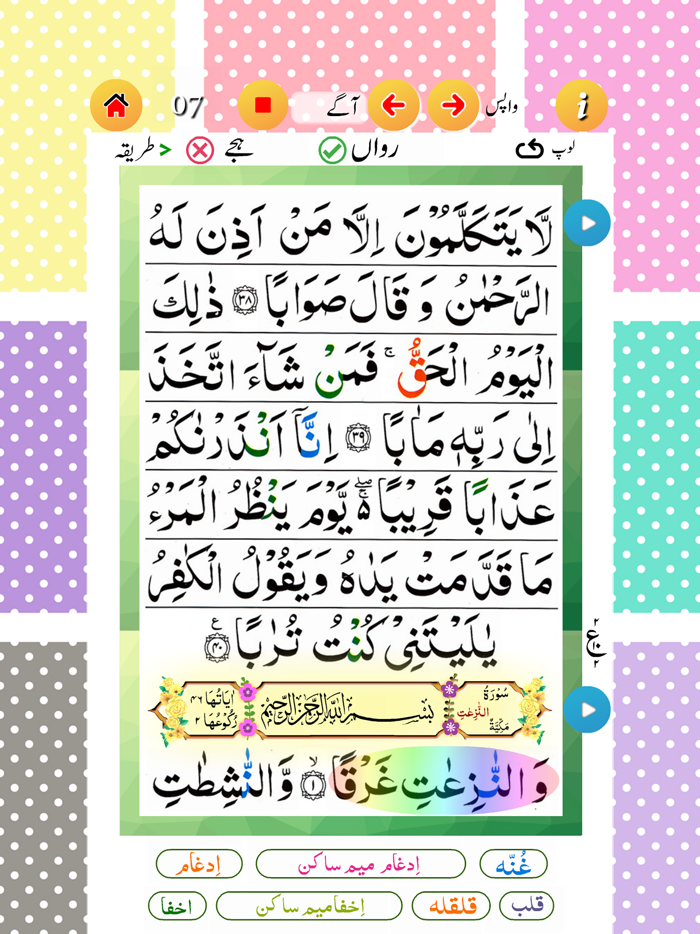 07 آگے واپس i
طریقہ > ہجے رواں لوپ
لَّا يَتَكَلَّمُوْنَ اِلَّا مَنْ اَذِنَ لَهُ
الرَّحْمٰنُ وَ قَالَ صَوَابًا ﴿۳۸﴾ ذٰلِكَ
الْيَوْمُ الْحَقُّ ۚ فَمَنْ شَآءَ اتَّخَذَ
اِلٰى رَبِّهٖ مَاٰبًا ﴿۳۹﴾ اِنَّاۤ اَنْذَرْنٰكُمْ
عَذَابًا قَرِيْبًا ۚۖ۬ يَّوْمَ يَنْظُرُ الْمَرْءُ
مَا قَدَّمَتْ يَدٰهُ وَ يَقُوْلُ الْكٰفِرُ
يٰلَيْتَنِيْ كُنْتُ تُرٰبًا ﴿۴۰﴾ ع
۲ ع ۲
سُوْرَةُ النّٰزِعٰتِ مَكِّيَّةٌ بِسْمِ اللّٰهِ الرَّحْمٰنِ الرَّحِيْمِ اٰيَاتُهَا ۴۶ رُكُوْعُهَا ۲
وَ النّٰزِعٰتِ غَرْقًا ۙ﴿۱﴾ وَّ النّٰشِطٰتِ
غُنّه اِدغام میم ساکن اِدغام
قلب قلقله اِخفا میم ساکن اخفا